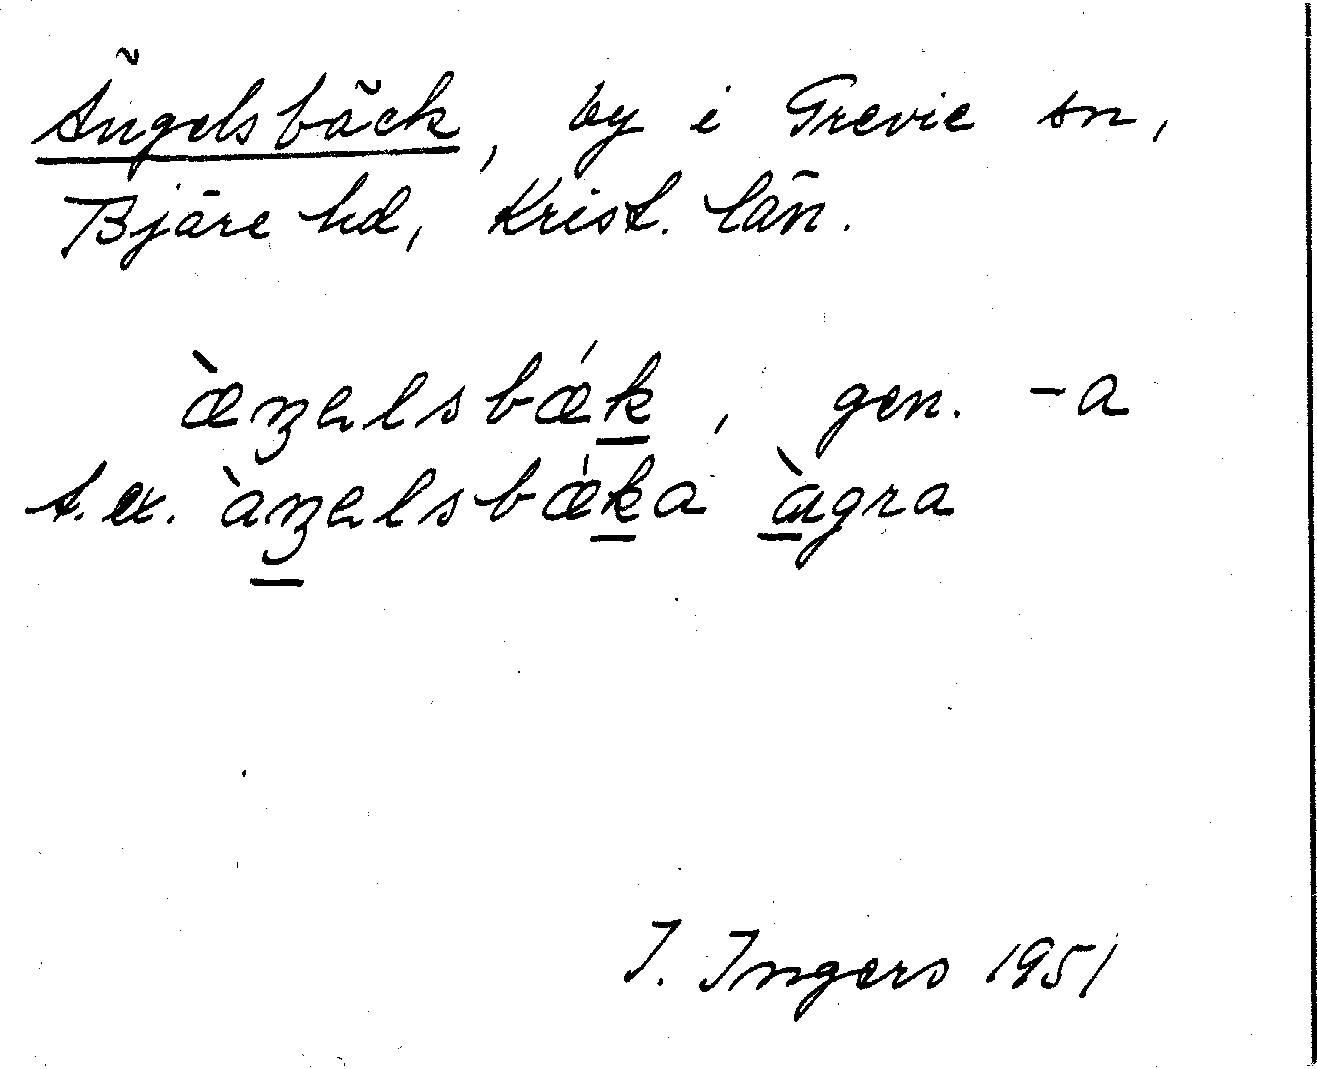 Ängelsbäck, by i Grevie sn,
Bjäre hd, Krist. län.
æ̀ŋəlsbǽk, gen. -a
t.ex. àŋəlsbǽka àgra
I. Ingers 1951